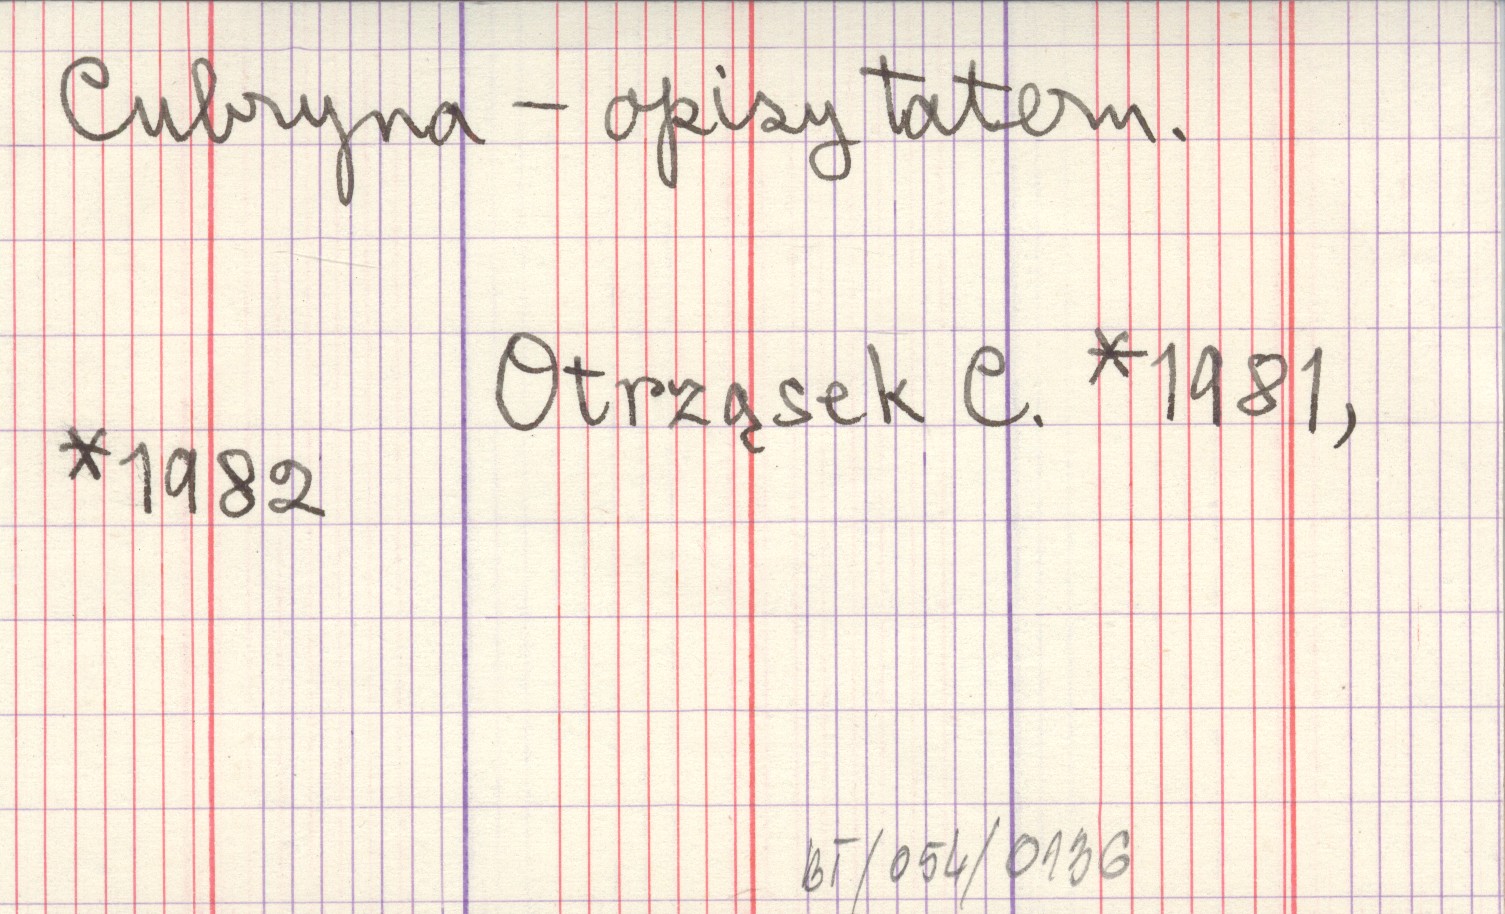 Cubryna - opisy tatern.
Otrząsek C. *1981,
*1982
BT/054/0136